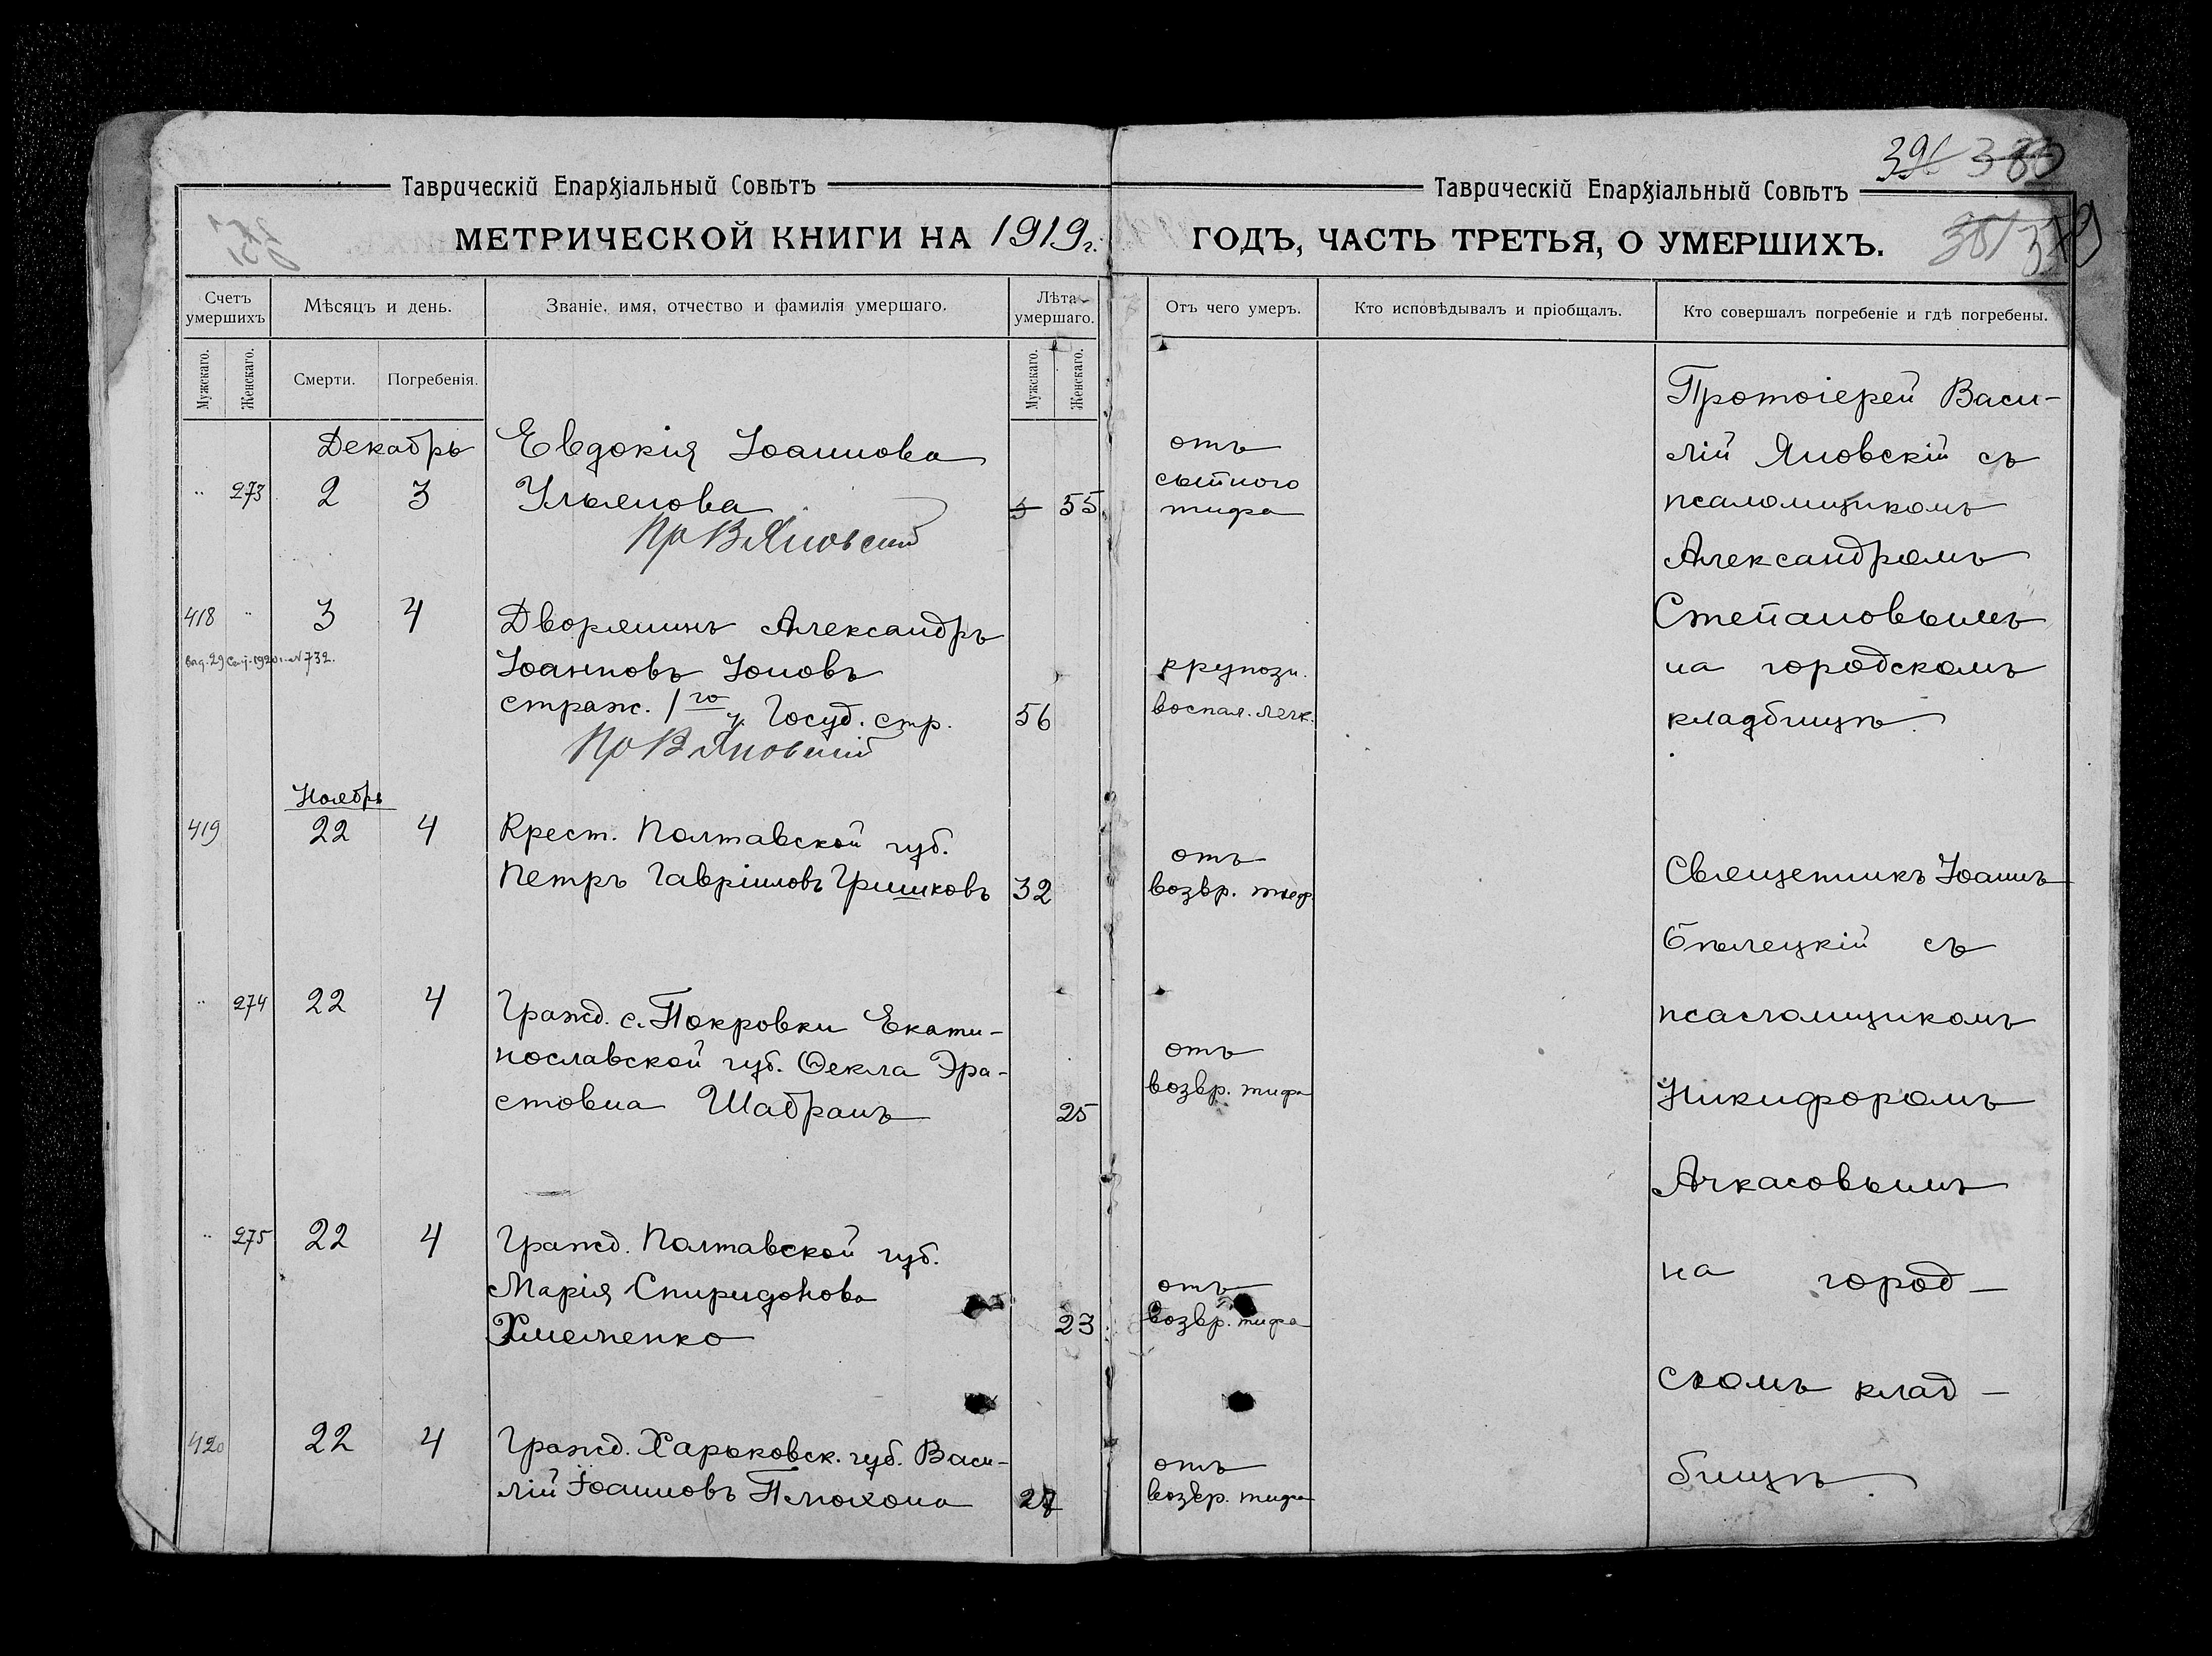 Таврическій Епархіальный Совѣтъ
МЕТРИЧЕСКОЙ КНИГИ НА 1919г.
Счетъ умершихъ
Мѣсяцъ и день.
Званіе, имя, отчество и фамилія умершаго.
Лѣта умершаго.
Мужскаго.
Женскаго.
Смерти.
Погребенія.
Мужскаго.
Женскаго.
Декабрь
273 2 3
Евдокія Іоаннова
Ульянова
55
Пр В Яновскій
418 3 4
732.
Дворянинъ Александръ
Іоанновъ Іоновъ
страж. 1го у. Госуд. стр.
56
Пр В Яновскій
Ноябрь
419 22 4
Крест. Полтавской губ.
Петръ Гавріиловъ Гришковъ 32
274 22 4
Гражд. с. Покровки Екати-
нославской губ. Ѳекла Эра-
стовна Шабранъ
25
275 22 4
Гражд. Полтавской губ.
Марія Спиридонова
Хмеленко
23
420 22 4
Гражд. Харьковск. губ. Васи-
лій Іоанновъ Плохона 27
396 383
Таврическій Епархіальный Совѣтъ
ГОДЪ, ЧАСТЬ ТРЕТЬЯ, О УМЕРШИХЪ.
381 379
Отъ чего умеръ.
Кто исповѣдывалъ и пріобщалъ.
Кто совершалъ погребеніе и гдѣ погребены.
отъ
сыпного
тифа
крупозн.
воспал. легк.
отъ
возвр. тиф.
отъ
возвр. тифа
отъ
возвр. тифа
отъ
возвр. тифа
Протоіерей Васи-
лій Яновскій съ
псаломщикомъ
Александромъ
Степановымъ
на городскомъ
кладбищѣ.
Священникъ Іоаннъ
Бѣлецкій съ
псаломщикомъ
Никифоромъ
Ачкасовымъ
на город-
скомъ клад-
бищѣ.